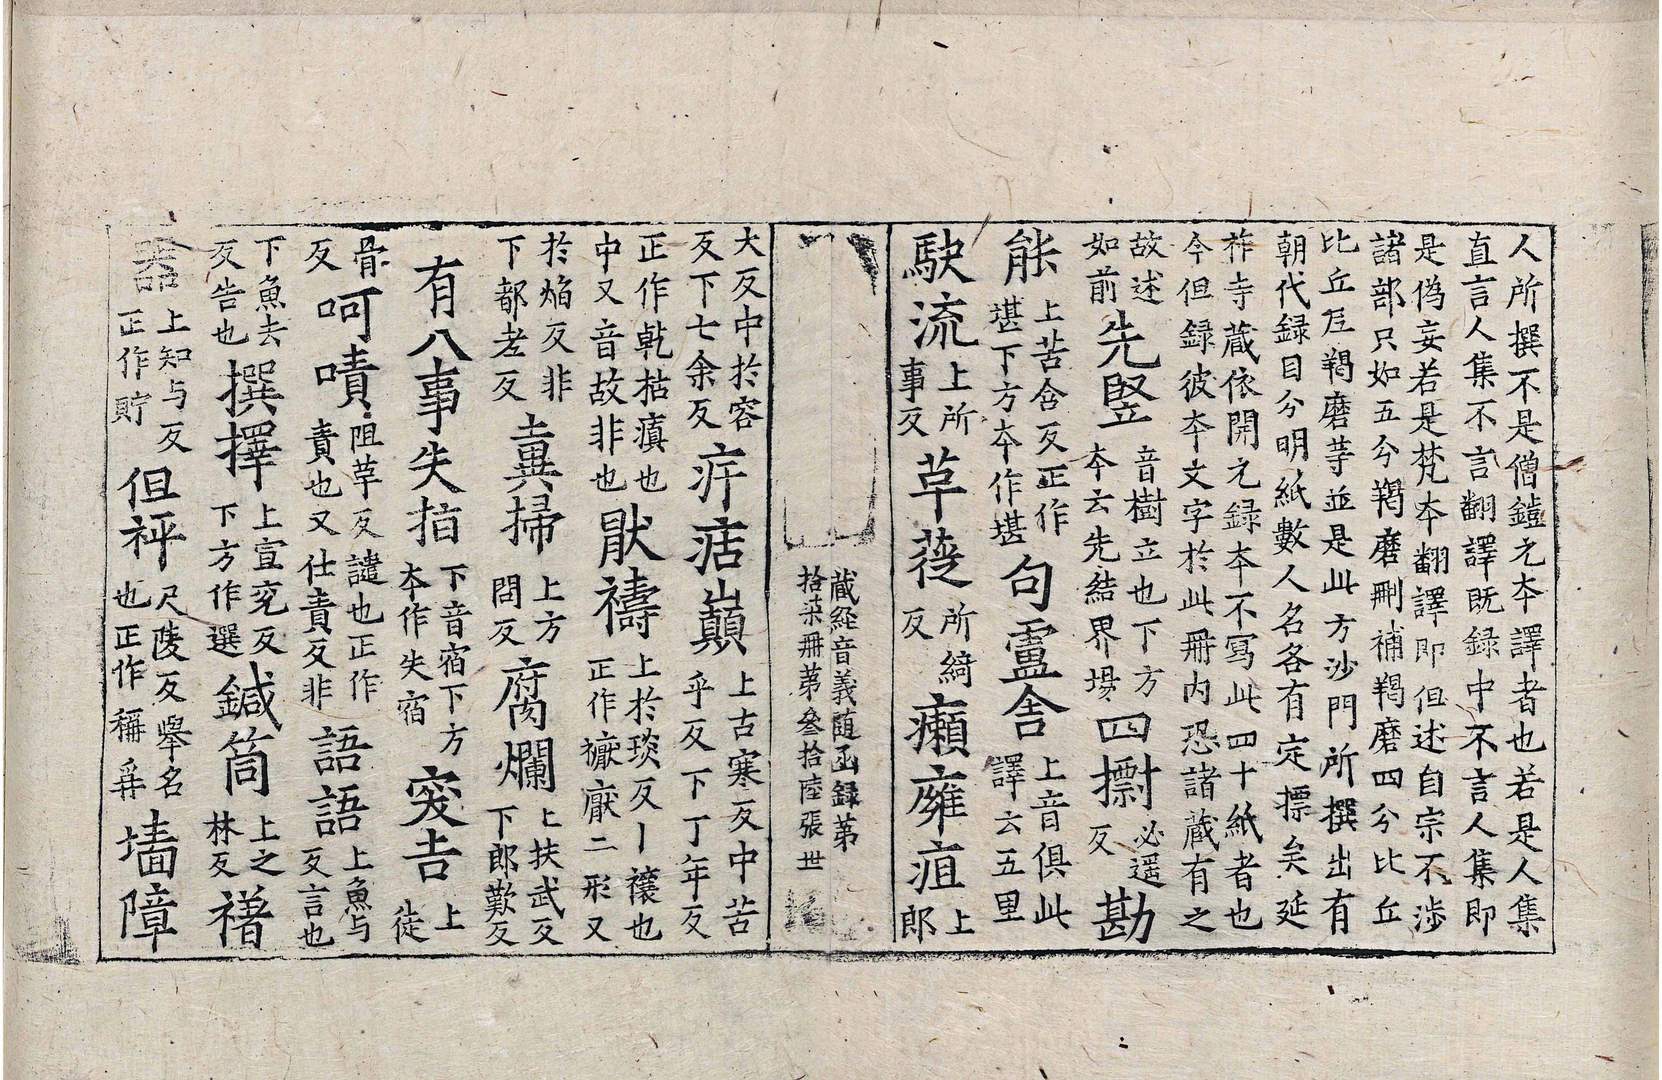 人所撰不是僧鎧元夲譯者也若是人集
直言人集不言翻譯既録中不言人集即
是僞妄若是梵夲翻譯即但述自宗不渉
諸部只如五分羯磨刪補羯磨四分比丘
比丘𡰱羯磨䓁並是此方沙門所撰出有
朝代録目分明紙數人名各有定摽矣延
祚寺蔵依開元録夲不寫此四十紙者也
今但録彼夲文字於此冊內恐諸蔵有之
故述
如前
先竪
音樹立也下方
夲云先結界場
四㩽
必遥
反
勘
能
上苦含反正作
堪下方夲作堪
句盧舎
上音俱此
譯云五里
駛流
上所
事反
草蓰
所綺
反
癩癕疽
上
郎
蔵經音義随函録苐
拾柒冊苐叄拾陸張 世
大反中於容
反下七余反
疨㾇巔
上古寒反中苦
乎反下丁年反
正作乾枯瘨也
中又音故非也
猒禱
上於琰反丨禳也
正作擫厭二形又
於焔反非
下都老反
𡊄掃
上方
問反
腐爛
上扶武反
下郎歎反
有八事失㨖
下音宿下方
夲作失宿
突吉
上
徒
骨
反
呵嘖
阻革反譴也正作
責也又仕責反非
語語
上魚与
反言也
下魚去
反告也
撰擇
上宣兖反
下方作選
鍼筒
上之
林反
䄕
上知与反
正作貯
但秤
尺陵反舉名
也正作稱爯
墙障